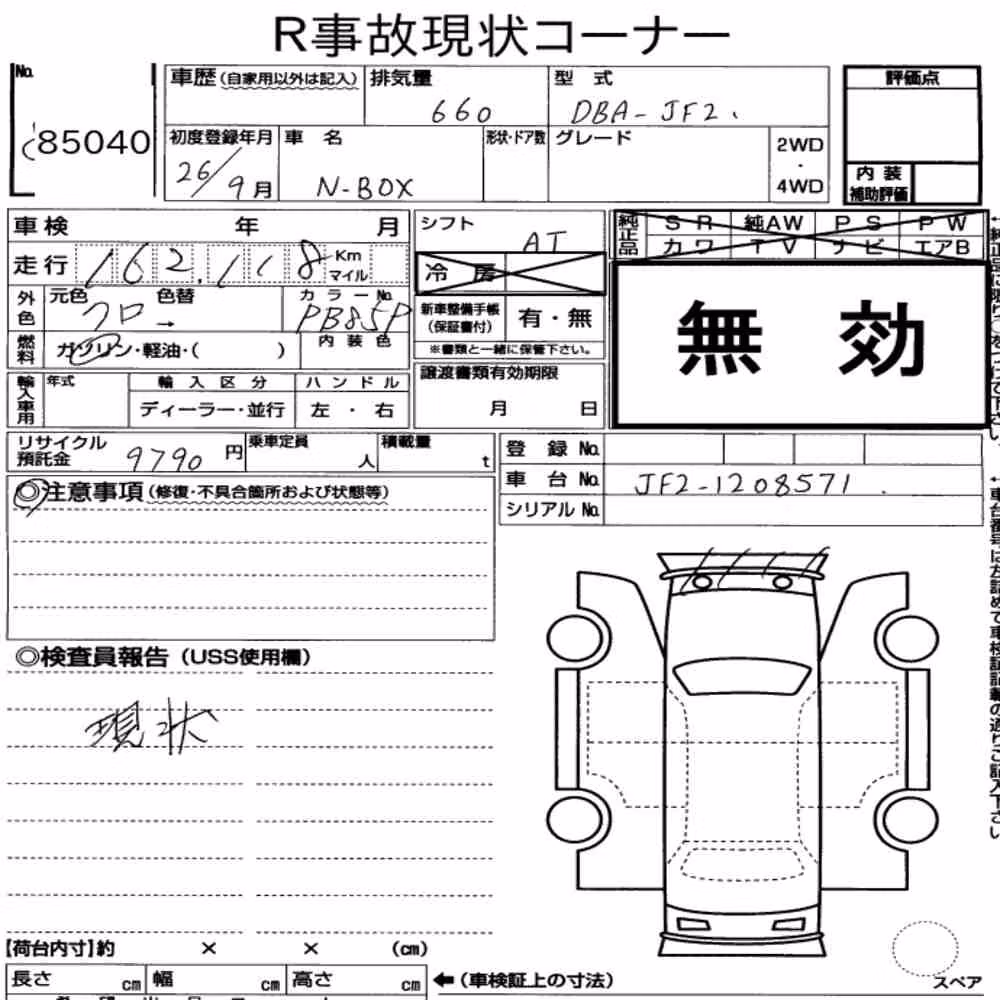 R事故現状コーナー
No.
85040
車歴 (自家用以外は記入)
排気量
660
型 式
DBA-JF2.
評価点
初度登録年月
26/9月
車 名
N-BOX
形状・ドア数
グレード
2WD
・
4WD
内 装
補助評価
車検 年 月
走行 162,118 Km
マイル
シフト
AT
冷 房
純正品
SR 純AW PS PW
カワ TV ナビ エアB
無 効
外色
元色
クロ
色替
→
カラーNo.
PB85P
内 装 色
新車整備手帳
(保証書付)
有・無
※書類と一緒に保管下さい。
燃料
ガソリン・軽油・( )
輸入車用
年式
輸 入 区 分
ディーラー・並行
ハ ン ド ル
左 ・ 右
譲渡書類有効期限
月 日
リサイクル
預託金
9790 円
乗車定員
人
積載量
t
登 録 No.
車 台 No. JF2-1208571.
シリアル No.
◎注意事項 (修復・不具合箇所および状態等)
◎検査員報告 (USS使用欄)
現状
【荷台内寸】約 × × (cm)
長さ cm 幅 cm 高さ cm
← (車検証上の寸法)
スペア